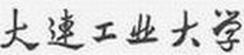 大連工业大学